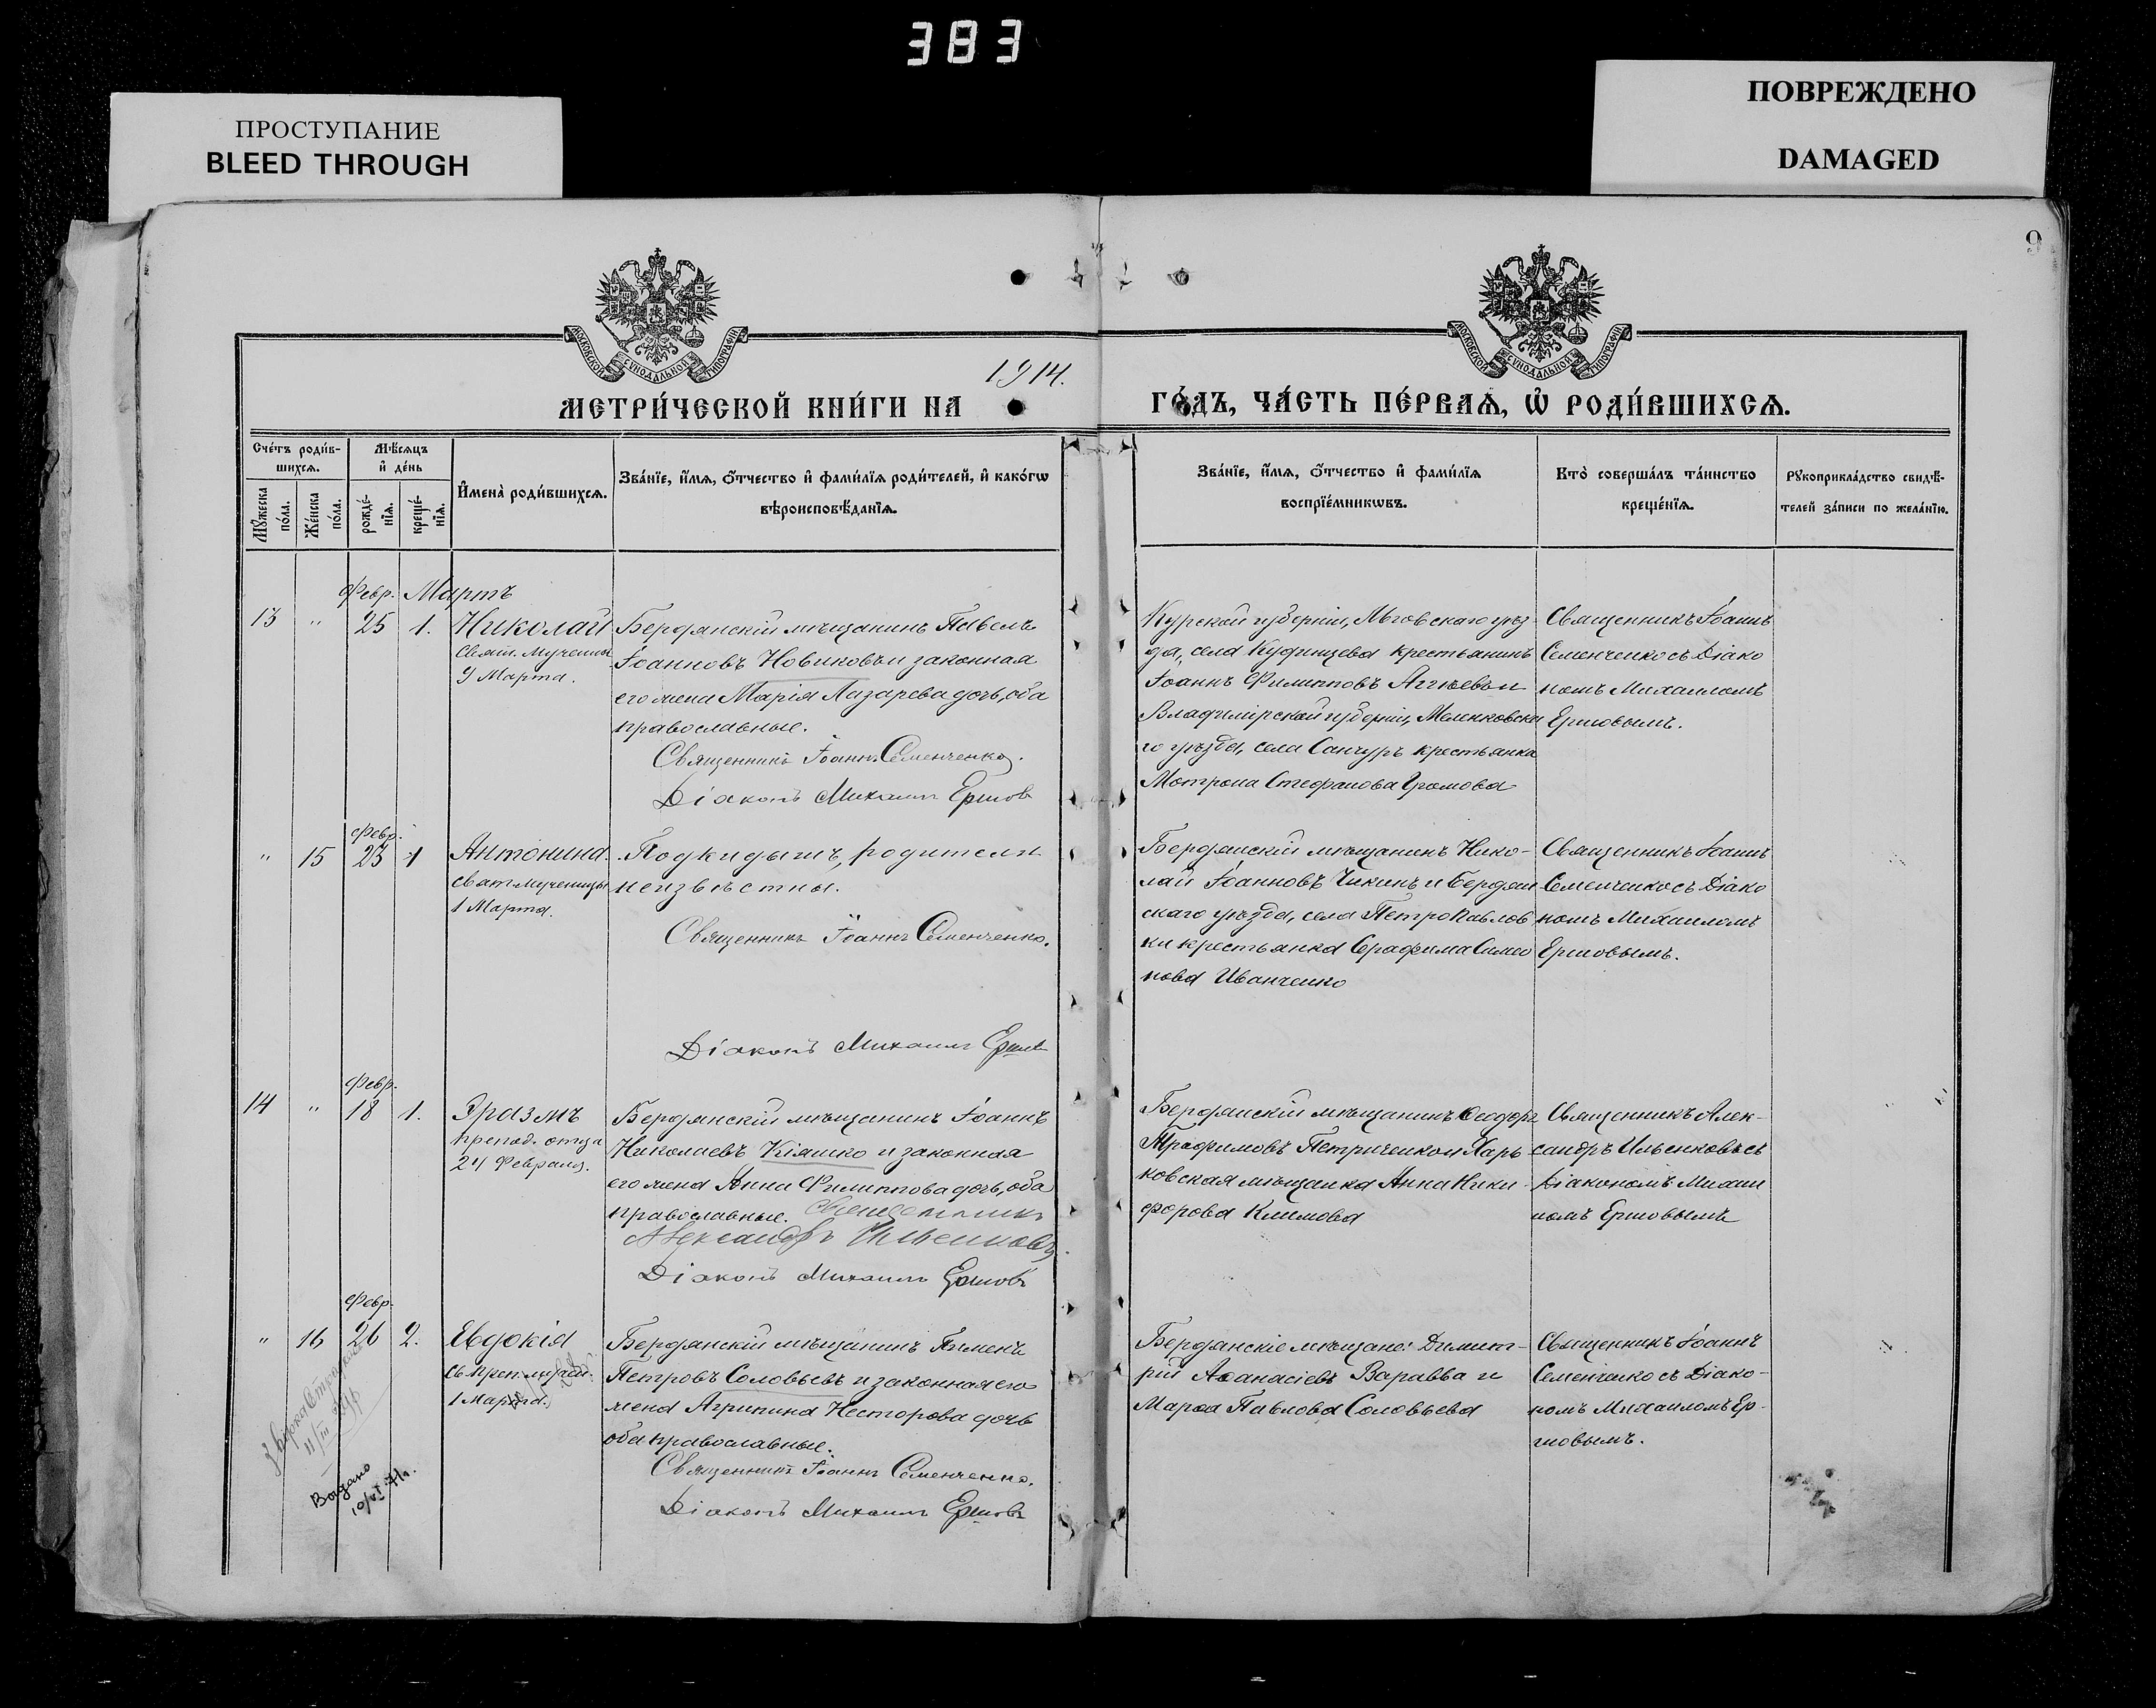 383
ПРОСТУПАНИЕ
BLEED THROUGH
ПОВРЕЖДЕНО
DAMAGED
9
МОСКОВСКОЙ СѴНОДАЛЬНОЙ ТИПОГРАФІИ
МОСКОВСКОЙ СѴНОДАЛЬНОЙ ТИПОГРАФІИ
1914.
МЕТРИ́ЧЕСКОЙ КНИ́ГИ НА
ГО́ДЪ, ЧА́СТЬ ПЕ́РВАѦ, Ѡ҆ РОДИ́ВШИХСѦ.
Сче́тъ роди́в-
шихсѧ.
Мꙋ́жеска
по́ла.
Же́нска
по́ла.
Мѣ́сѧцъ
и҆ де́нь
рожде́-
нїѧ.
креще́-
нїѧ.
И҆мена̀ роди́вшихсѧ.
Зва́нїе, и҆́мѧ, ѻ҆́тчество и҆ фами́лїѧ роди́телей, и҆ како́гѡ
вѣроисповѣ́данїѧ.
Зва́нїе, и҆́мѧ, ѻ҆́тчество и҆ фами́лїѧ
воспрїе́мникѡвъ.
Кто̀ соверша́лъ та́инство
креще́нїѧ.
Рꙋкоприкла́дство свидѣ́-
телей за́писи по жела́нїю.
Февр. Мартъ
13 " 25 1. Николай
Свят. Мученик
9 Марта.
Бердянскій мѣщанинъ Павелъ
Іоанновъ Новиковъ и законная
его жена Марія Лазарева дочь, оба
православные.
Священникъ Іоаннъ Семенченко.
Діаконъ Михаилъ Ершов
Курской губерніи, Льговскаго уѣз-
да, села Кудинцева крестьянинъ
Іоаннъ Филипповъ Агѣевъ и
Владимірской губерніи, Меленковска
го уѣзда, села Санчуръ крестьянка
Мотрона Стефанова Громова
Священникъ Іоаннъ
Семенченко съ Діако
номъ Михаиломъ
Ершовымъ.
Февр.
" 15 23 1 Антонина.
Свят Мученицы
1 Марта.
Подкидышъ, родители
неизвѣстны.
Священникъ Іоаннъ Семенченко.
Діаконъ Михаилъ Ершов
Бердянскій мѣщанинъ Нико-
лай Іоанновъ Чикинъ и Бердян
скаго уѣзда, села Петропавлов
ки крестьянка Серафима Симео
нова Иванченко
Священникъ Іоаннъ
Семенченко съ Діако
номъ Михаиломъ
Ершовымъ.
Февр.
14 " 18 1. Эразмъ
препод. отца
24 Февраля.
Бердянскій мѣщанинъ Іоаннъ
Николаевъ Кіяшко и законная
его жена Анна Филиппова дочь, оба
православные. Священникъ
Александръ Ильенковъ.
Діаконъ Михаилъ Ершовъ
Бердянскій мѣщанинъ Ѳеодоръ
Трофимовъ Петриченко и Харь
ковская мѣщанка Анна Ники-
форова Климова
Священникъ Алек-
сандръ Ильенковъ съ
Діакономъ Михаи
ломъ Ершовымъ
Февр.
" 16 26 2. Евдокія
1 Марта.
Бердянскій мѣщанинъ Пименъ
Петровъ Соловьевъ и законная его
жена Агрипина Несторова дочь
оба православные.
Священникъ Іоаннъ Семенченко.
Діаконъ Михаилъ Ершовъ
Бердянскіе мѣщане: Димит-
рій Аѳанасіевъ Варавва и
Марѳа Павлова Соловьева
Священникъ Іоаннъ
Семенченко съ Діако-
номъ Михаиломъ Ер-
шовымъ.
Выдано